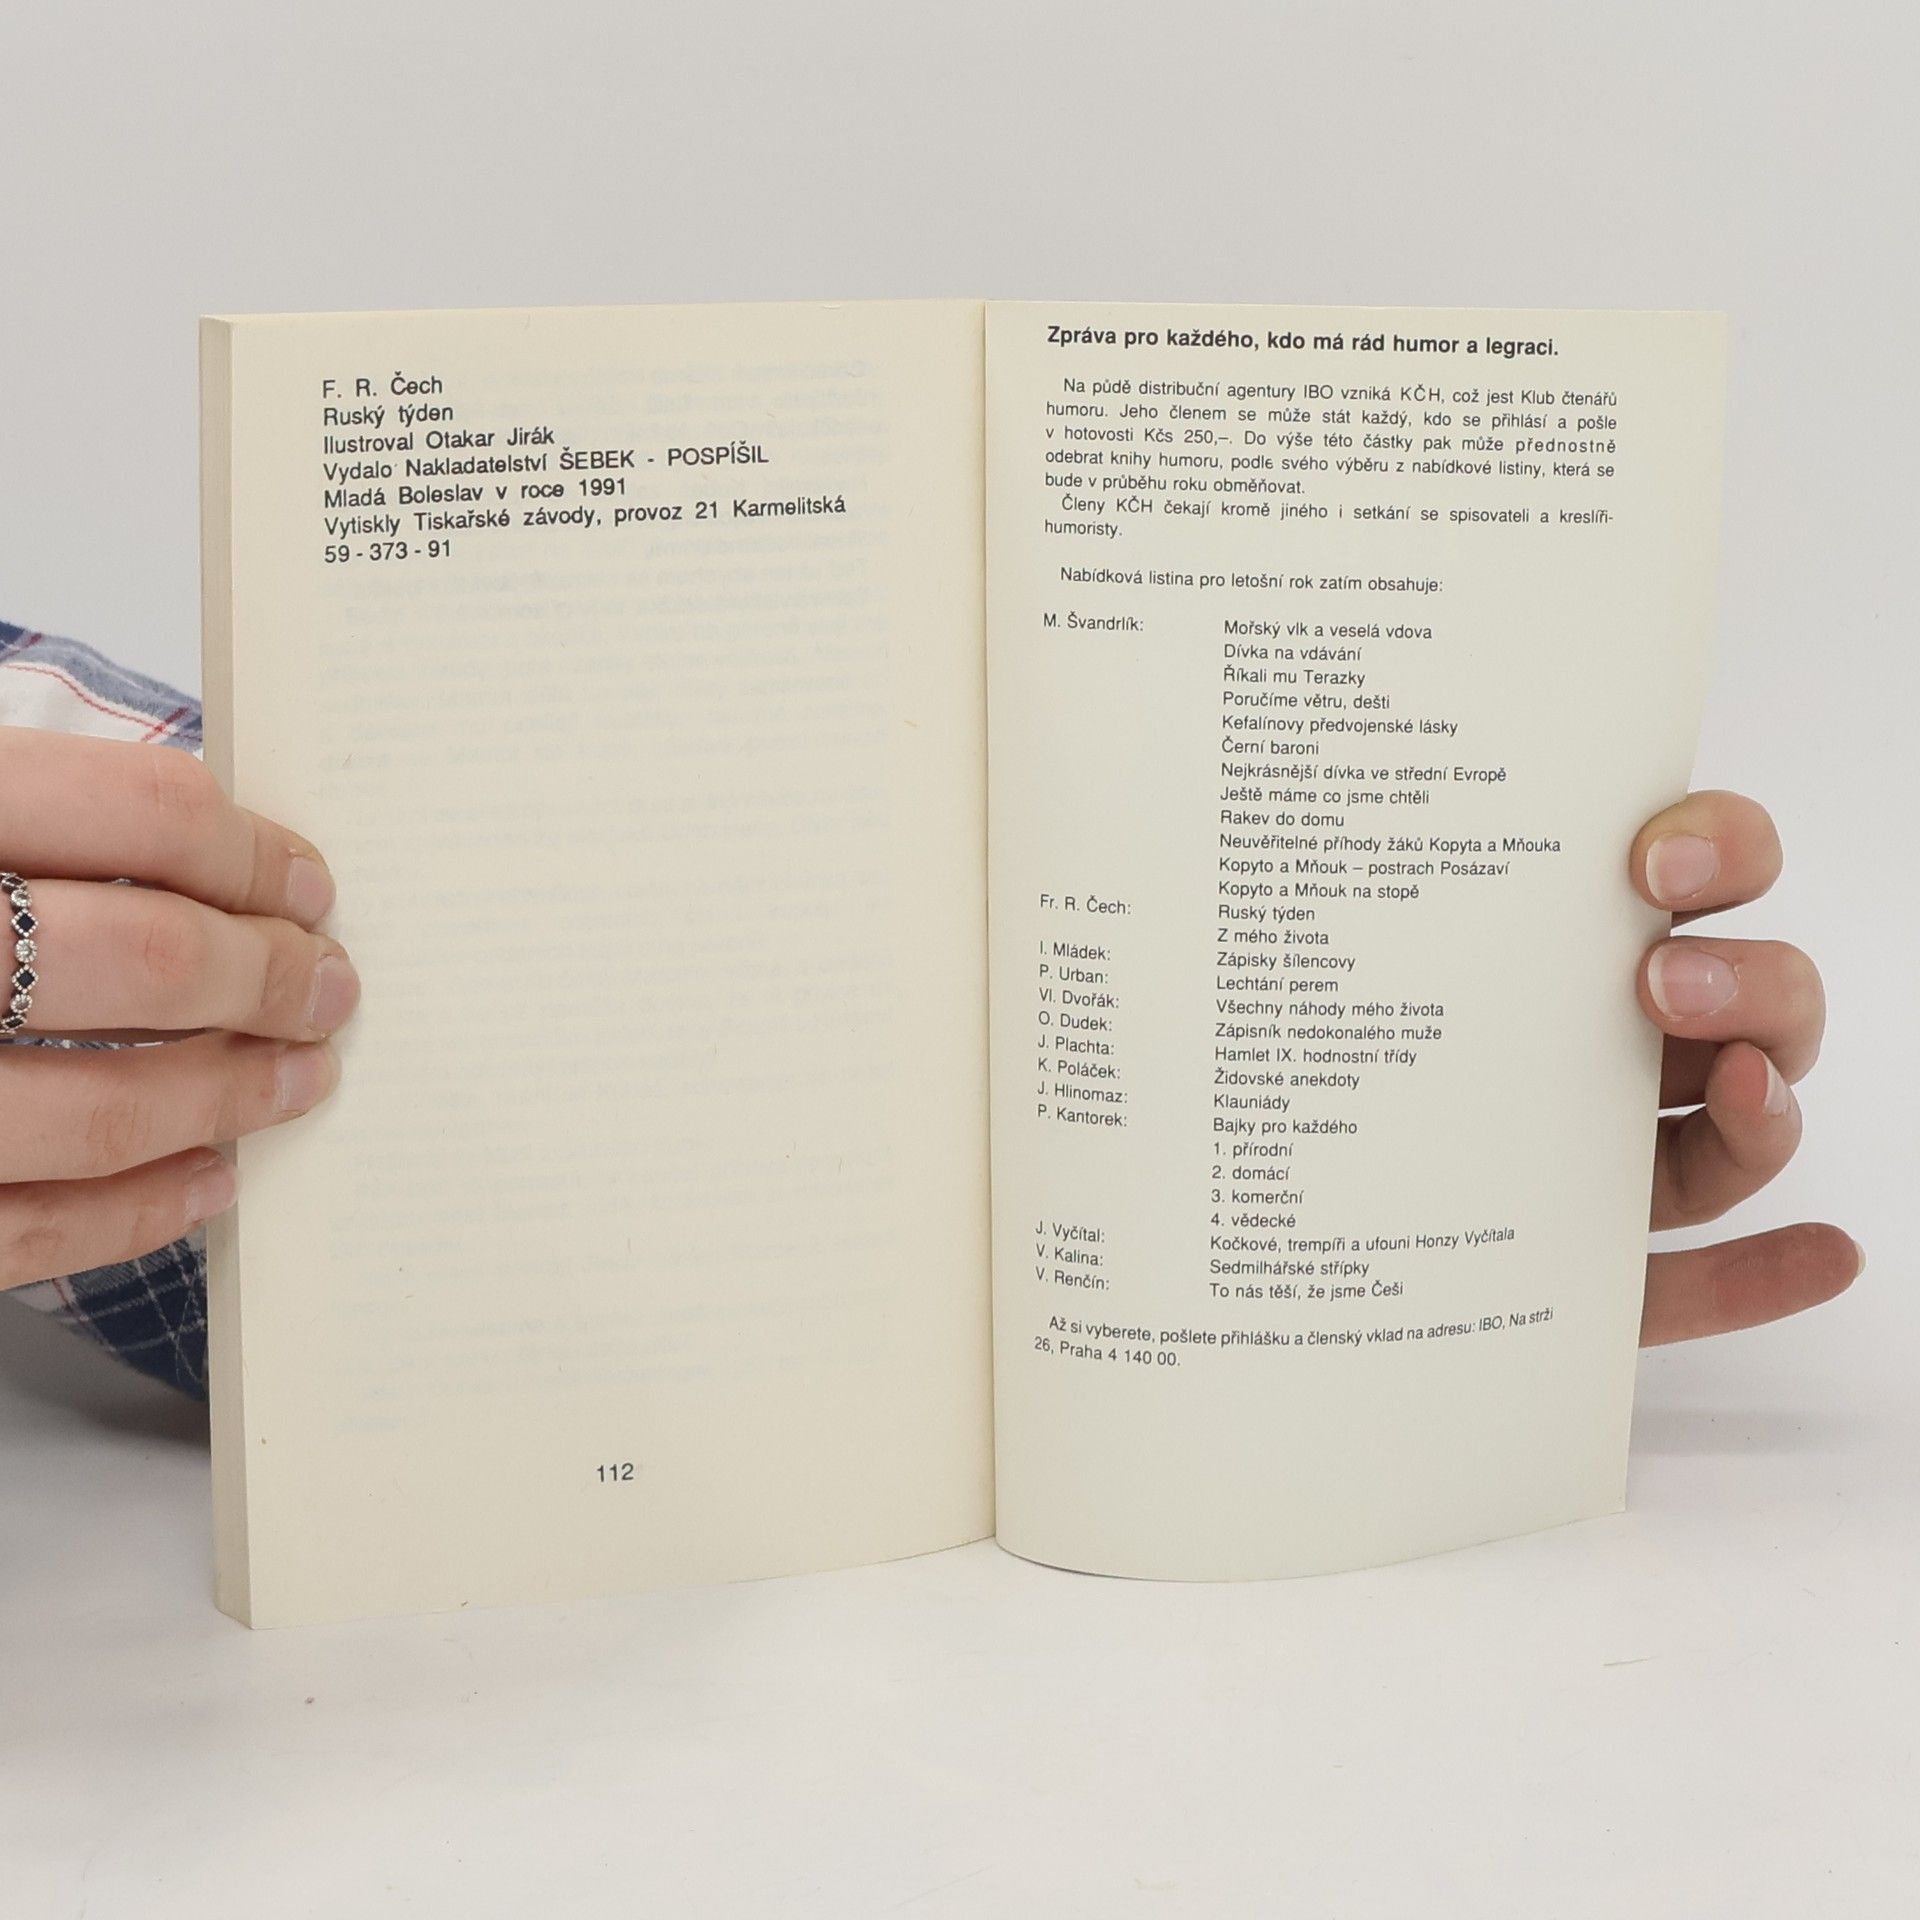 F. R. Čech
Ruský týden
Ilustroval Otakar Jirák
Vydalo Nakladatelství ŠEBEK - POSPÍŠIL
Mladá Boleslav v roce 1991
Vytiskly Tiskařské závody, provoz 21 Karmelitská
59 - 373 - 91
112
Zpráva pro každého, kdo má rád humor a legraci.
Na půdě distribuční agentury IBO vzniká KČH, což jest Klub čtenářů
humoru. Jeho členem se může stát každý, kdo se přihlásí a pošle
v hotovosti Kčs 250,–. Do výše této částky pak může přednostně
odebrat knihy humoru, podle svého výběru z nabídkové listiny, která se
bude v průběhu roku obměňovat.
Členy KČH čekají kromě jiného i setkání se spisovateli a kreslíři-
humoristy.
Nabídková listina pro letošní rok zatím obsahuje:
M. Švandrlík: Mořský vlk a veselá vdova
Dívka na vdávání
Říkali mu Terazky
Poručíme větru, dešti
Kefalínovy předvojenské lásky
Černí baroni
Nejkrásnější dívka ve střední Evropě
Ještě máme co jsme chtěli
Rakev do domu
Neuvěřitelné příhody žáků Kopyta a Mňouka
Kopyto a Mňouk – postrach Posázaví
Kopyto a Mňouk na stopě
Fr. R. Čech: Ruský týden
Z mého života
I. Mládek: Zápisky šílencovy
P. Urban: Lechtání perem
Vl. Dvořák: Všechny náhody mého života
O. Dudek: Zápisník nedokonalého muže
J. Plachta: Hamlet IX. hodnostní třídy
K. Poláček: Židovské anekdoty
J. Hlinomaz: Klauniády
P. Kantorek: Bajky pro každého
1. přírodní
2. domácí
3. komerční
4. vědecké
J. Vyčítal: Kočkové, trempíři a ufouni Honzy Vyčítala
V. Kalina: Sedmilhářské střípky
V. Renčín: To nás těší, že jsme Češi
Až si vyberete, pošlete přihlášku a členský vklad na adresu: IBO, Na strži
26, Praha 4 140 00.